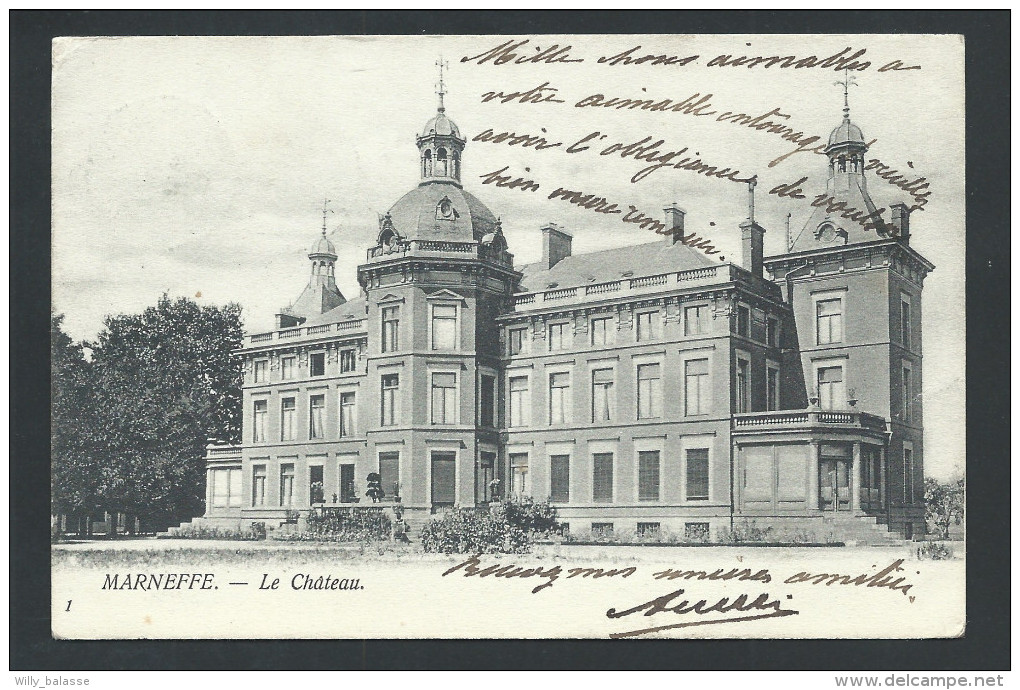 Mille choses aimables a
votre aimable entourage veuillez
avoir l'obligeance de vouloir
bien
MARNEFFE. — Le Château.
Recevez mes amitiés
1
Willy_balasse
www.delcampe.net